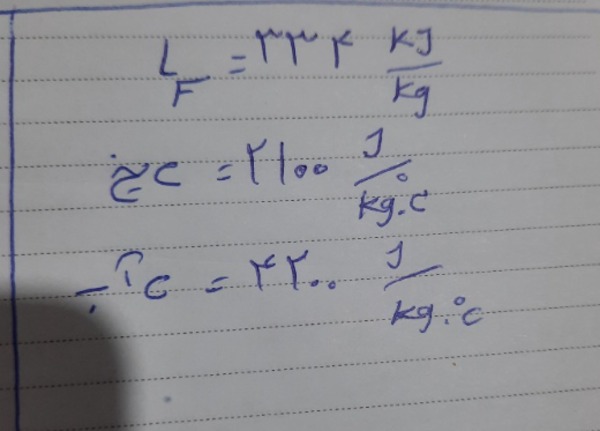 L_F = ۳۳۴ kJ/kg
یخ c = ۲۱۰۰ J/kg.°C
آب c = ۴۲۰۰ J/kg.°C